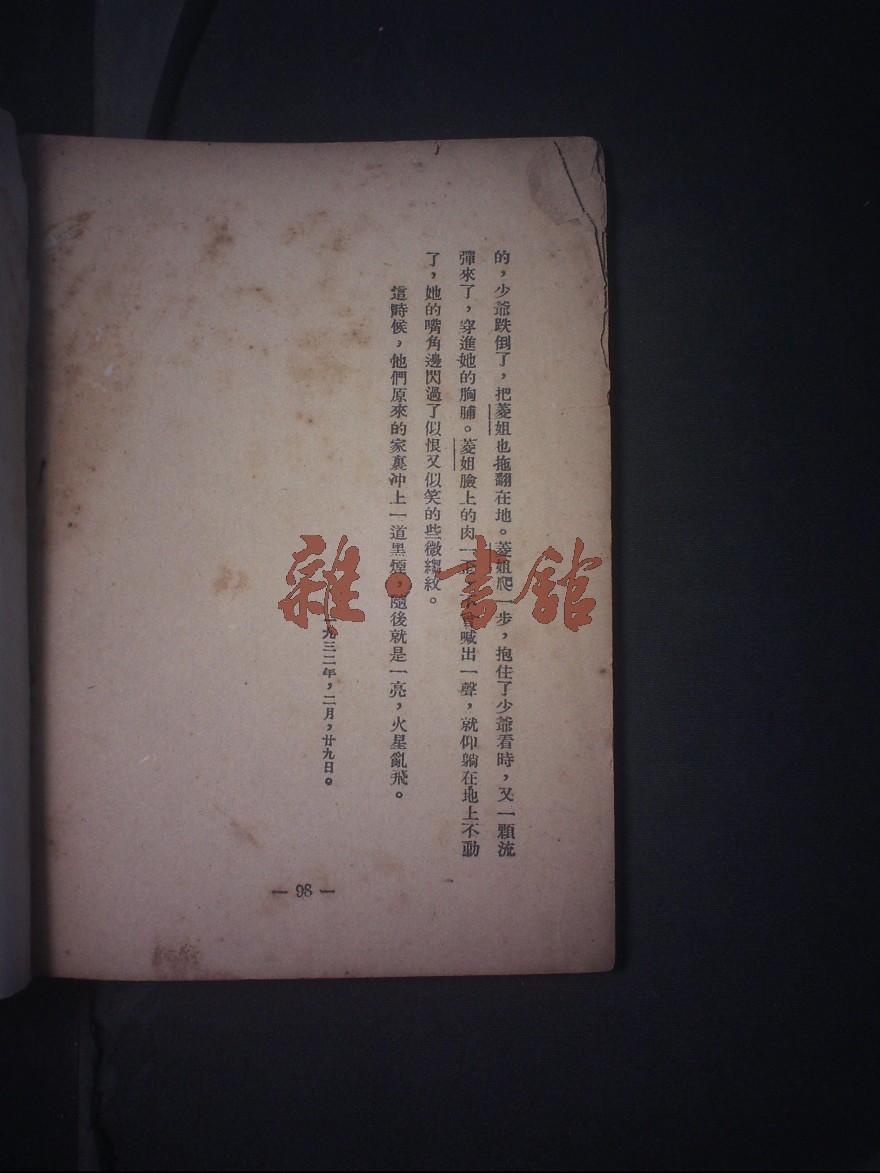 的，少爺跌倒了，把菱姐也拖翻在地。菱姐爬一步，抱住了少爺看時，又一顆流
彈來了，穿進她的胸脯。菱姐臉上的肉一喊出一聲，就仰躺在地上不動
了，她的嘴角邊閃過了似恨又似笑的些微縐紋。
這時候，他們原來的家裏冲上一道黑煙，隨後就是一亮，火星亂飛。
一九三二年，二月，廿九日。
— 98 —
雜·書館